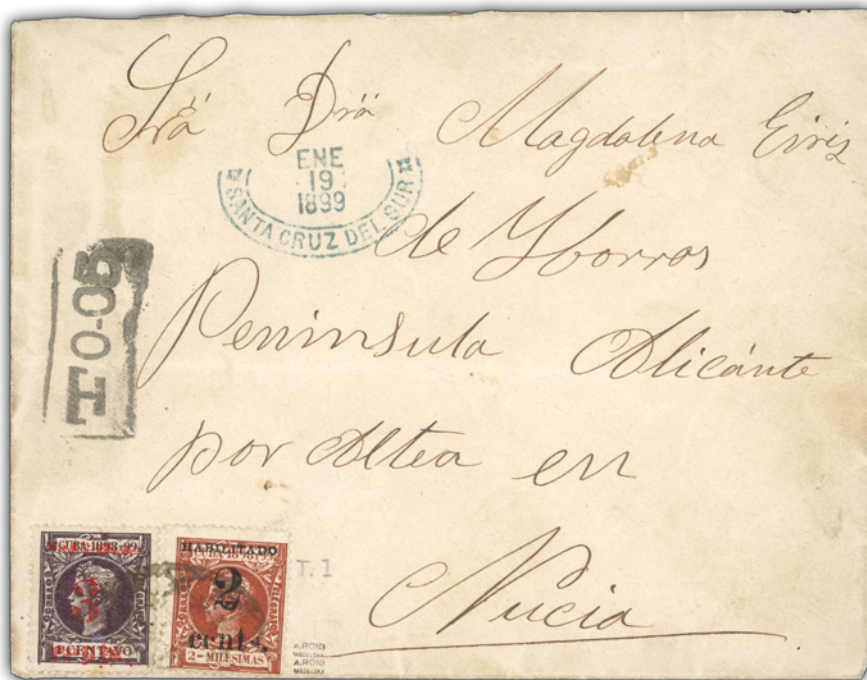 Srã Drã Magdalena Eiriz
ENE
19
1899
SANTA CRUZ DEL SUR
de Yborras
T 0-0
Peninsula Alicánte
por Altea en
Nucia
CUBA 1898-99
1 CENTAVO
HABILITADO
CUBA 1898
2
cents.
2-MILESIMAS
T. 1
A.ROIG
A.ROIG